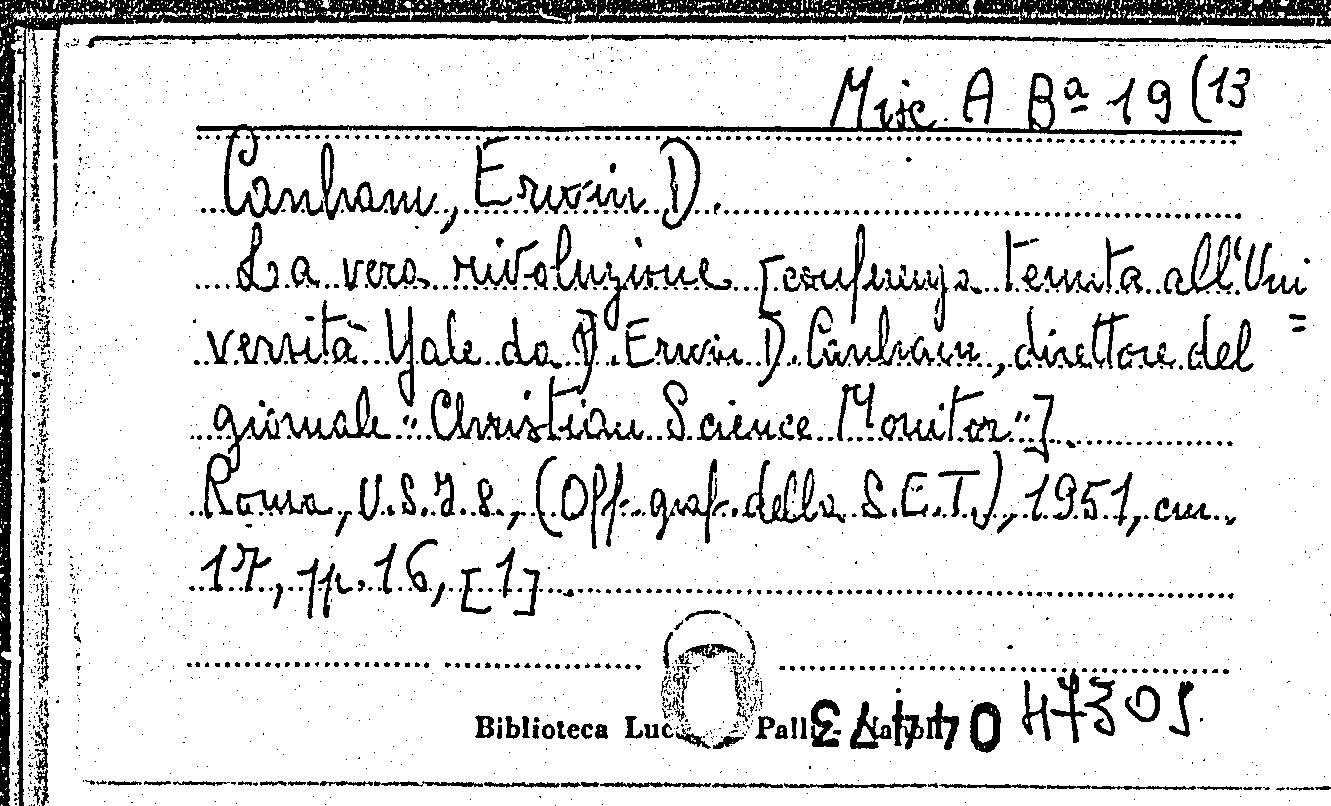 Misc. A Bª 19 (13
Canham, Erwin D.
La vera rivoluzione [conferenza tenuta all'Uni
versità Yale da D. Erwin D. Canham, direttore del =
giornale "Christian Science Monitor"].
Roma, U.S.I.S., (Off. graf. della S.E.T.), 1951, cm.
17, pp. 16, [1].
Biblioteca Luc Palli - Napoli
04473
47305